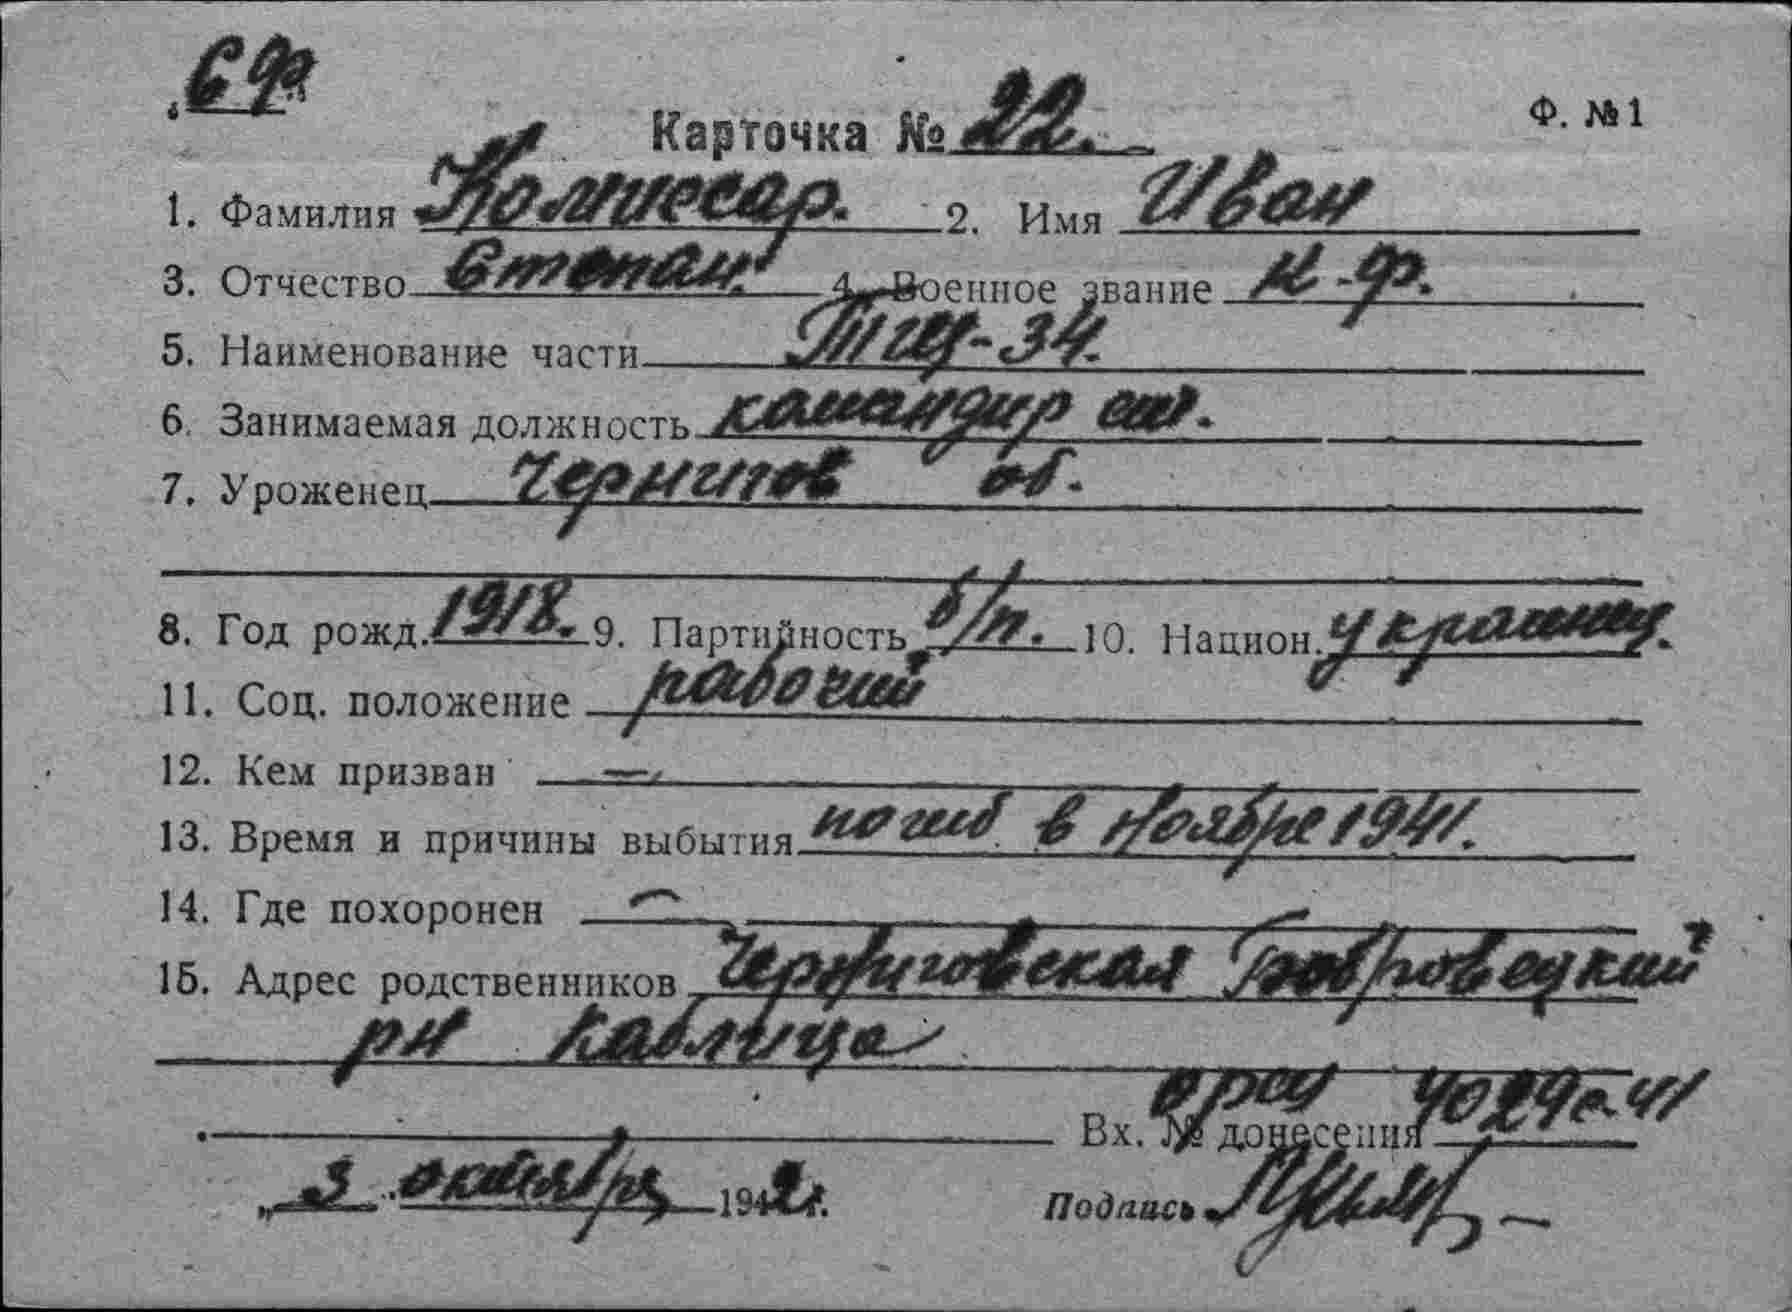 Ф. № 1
Карточка № 22.
1. Фамилия Комиссар. 2. Имя Иван
3. Отчество Степан. 4. Военное звание к-ф.
5. Наименование части ТЩ-34.
6. Занимаемая должность командир отд.
7. Уроженец Чернигов об.
8. Год рожд. 1918. 9. Партийность б/п. 10. Национ. украинец.
11. Соц. положение рабочий
12. Кем призван —
13. Время и причины выбытия погиб в ноябре 1941.
14. Где похоронен —
15. Адрес родственников Черниговская Бобровецкий
рн Кавлица
Вх. № донесения
„3" октября 1942 г.
Подпись